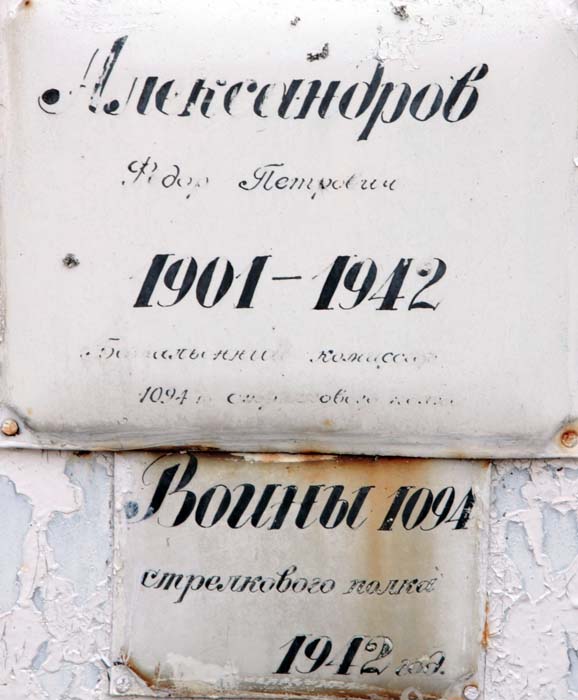 Александров
Фёдор Петрович
1901-1942
Батальонный комиссар
1094 стрелкового полка
Воины 1094
стрелкового полка
1942 год.